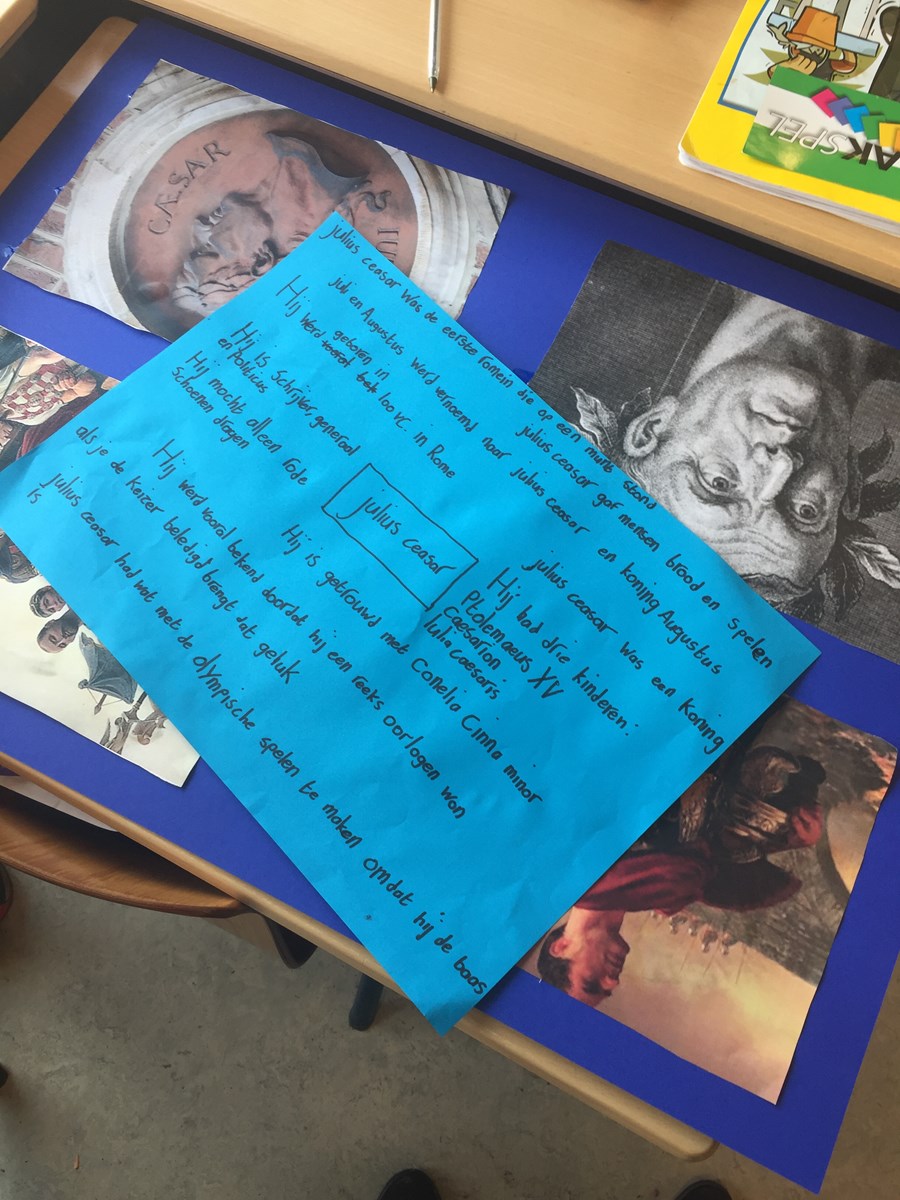 CÆSAR
IUL
AKSPEL
julius ceasar was de eerste romein die op een munt stond
julius ceasar gaf mensen brood en spelen
juli en Augustus werd vernoemd naar julius ceasar en koning Augustus
Hij werd geboren in 100 VC in Rome
julius ceasar was een koning
Hij is schrijver generaal
en Politicus
Hij mocht alleen rode
schoenen dragen
julius ceasar
Hij had drie kinderen:
Ptolemaeus XV
Caesarion
Iulia Caesaris
Hij is getrouwd met Conelia Cinna minor
Hij werd vooral bekend doordat hij een reeks oorlogen won
als je de keizer beledigt brengt dat geluk
julius ceasar had wat met de olympische spelen te maken omdat hij de baas
is